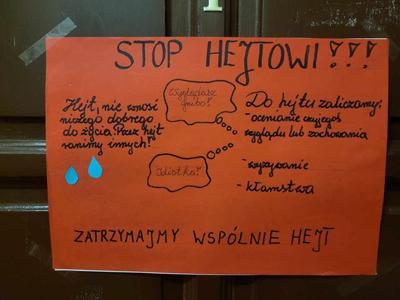 STOP HEJTOWI !!!
Hejt, nie wnosi
niczego dobrego
do życia. Przez hejt
ranimy innych!
Wyglądasz
grubo!
Idiotka!
Do hejtu zaliczamy:
- ocenianie czyjegoś
wyglądu lub zachowania
- wyzywanie
- kłamstwa
ZATRZYMAJMY WSPÓLNIE HEJT